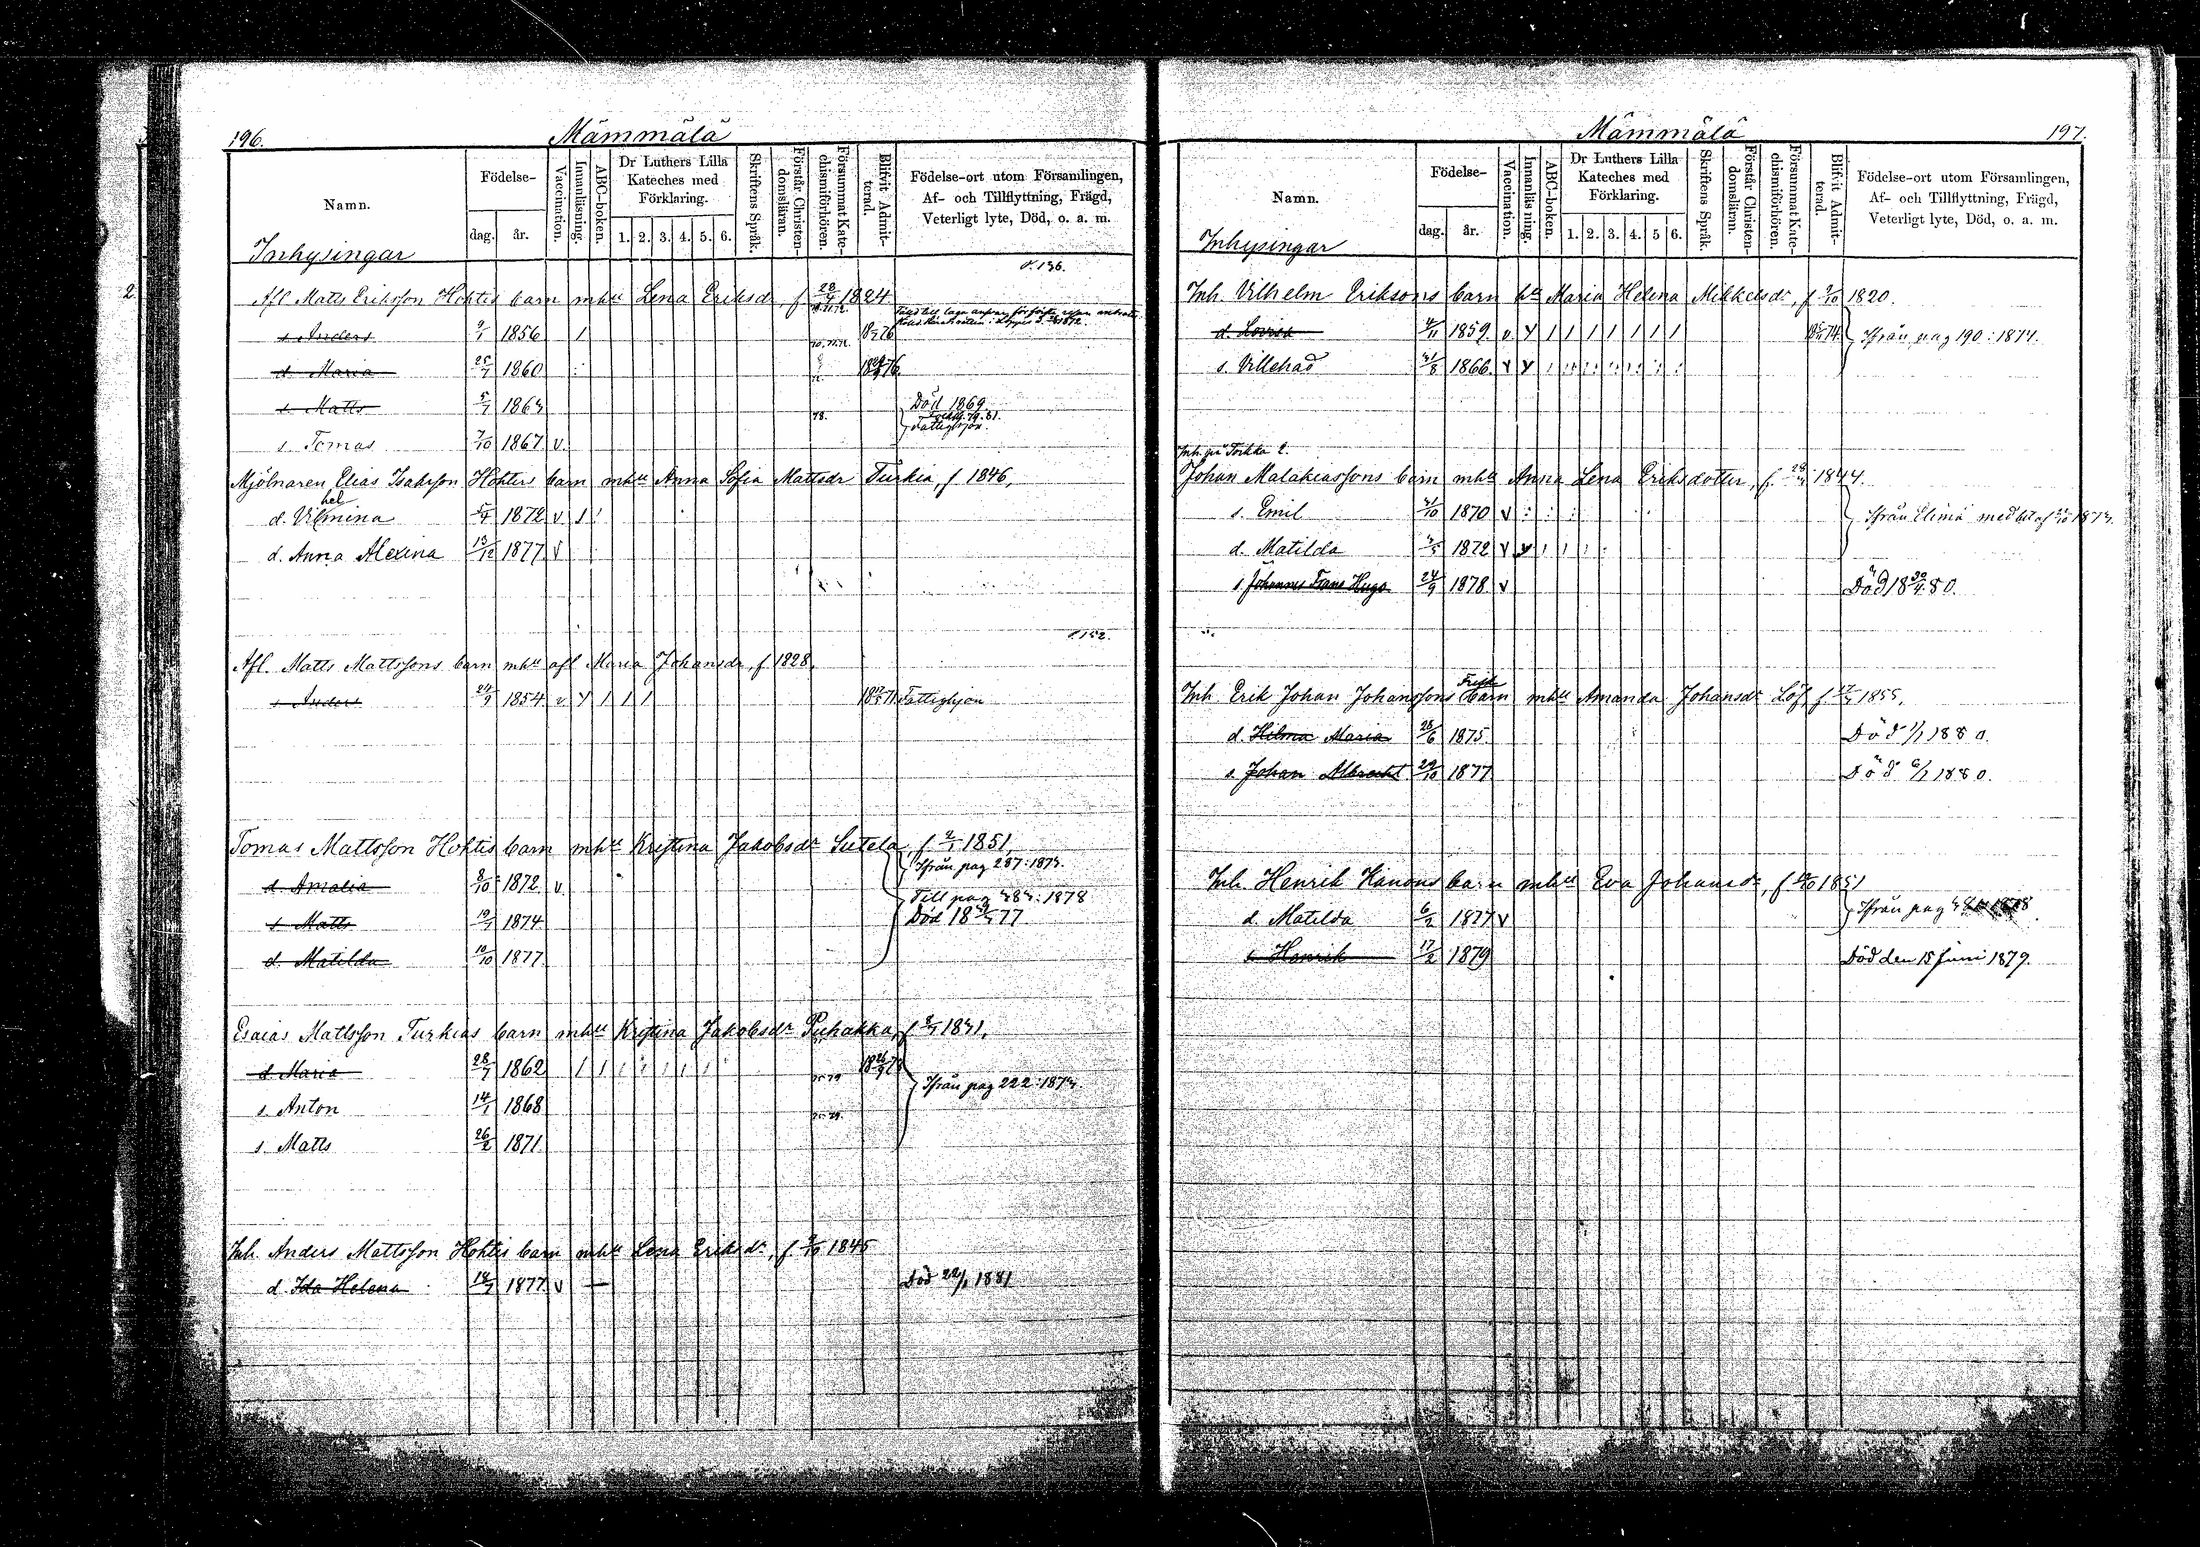 196. Mämmälä
Namn. Födelse- dag. år. Vaccination. Innanläsning. ABC-boken. Dr Luthers Lilla Kateches med Förklaring. 1. 2. 3. 4. 5. 6. Skriftens Språk. Förstår Christendomsläran. Försummat Katechismiförhören. Blifvit Admitterad. Födelse-ort utom Församlingen, Af- och Tillflyttning, Frägd, Veterligt lyte, Död, o. a. m.
Inhysingar
s. 136.
2. Afl Matts Eriksson Hohtis barn mhu Lena Eriksdr, f 28/4 1824
s Anders 9/1 1856 1 76
d. Maria 25/7 1860 76
s. Matts 5/7 1863 Död 1869
78. Fattighjon.
s. Tomas 7/10 1867 v.
Mjölnaren Elias Isaksson Hohtis barn mhu Anna Sofia Mattsdr Turkia, f 1846,
hel
d. Vilmina 5/4 1872 v 1
d. Anna Alexina 13/12 1877 v
s 152.
Afl. Matts Mattssons barn mhu afl Maria Johansdr, f 1828,
s Anders 24/9 1854 v y 1 1 1 71 Fattighjon
Tomas Mattsson Hohtis barn mhu Kristina Jakobsdr Sutela, f 4/1 1851,
Ifrån pag 287: 1873.
d. Amalia 8/10 1872 v.
Till pag 383: 1878
s Matts 19/1 1874 Död 77
d. Matilda 10/10 1877
Esaias Mattsson Turkias barn mhu Kristina Jakobsdr Puhakka, f 8/7 1831,
d. Maria 28/7 1862
Ifrån pag 222: 1873.
s. Anton 14/1 1868
s Matts 26/2 1871
Inh. Anders Mattsson Hohtis barn mhu Lena Eriksdr, f 7/10 1845
d. Ida Helena 18/7 1877 v — Död 22/1 1881
Mämmälä 197.
Namn. Födelse- dag. år. Vaccination. Innanläsning. ABC-boken. Dr Luthers Lilla Kateches med Förklaring. 1. 2. 3. 4. 5 6. Skriftens Språk. Förstår Christendomsläran. Försummat Katechismiförhören. Blifvit Admitterad. Födelse-ort utom Församlingen, Af- och Tillflyttning, Frägd, Veterligt lyte, Död, o. a. m.
Inhysingar
Inh. Vilhelm Eriksons barn hu Maria Helena Mikkelsdr, f 9/10 1820.
d. Lovisa 4/11 1859. v. y 1 1 1 1 1 1 1 74. Ifrån pag 190: 1874.
s. Villehad 31/8 1866. v y
Inh. på Torkka 2.
Johan Malakiassons barn mhu Anna Lena Eriksdotter, f. 28/4 1844.
s. Emil 31/10 1870 v Ifrån Elimä med bet af 1873.
d. Matilda 4/5 1872 v y
s. Johannes Frans Hugo 24/9 1878. v Död 18 30/4 80.
Inh. Erik Johan Johanssons barn mhu Amanda Johansdr Löf, f 1855,
d. Hilma Maria 28/6 1875. Död 1/1 1880.
s. Johan Albrecht 29/10 1877 Död 6/1 1880.
Inh. Henrik Hänons barn mhu Eva Johansdr, f 1851
d. Matilda 6/2 1877 v Ifrån pag
s. Henrik 17/2 1879 Död den 15 Juni 1879.